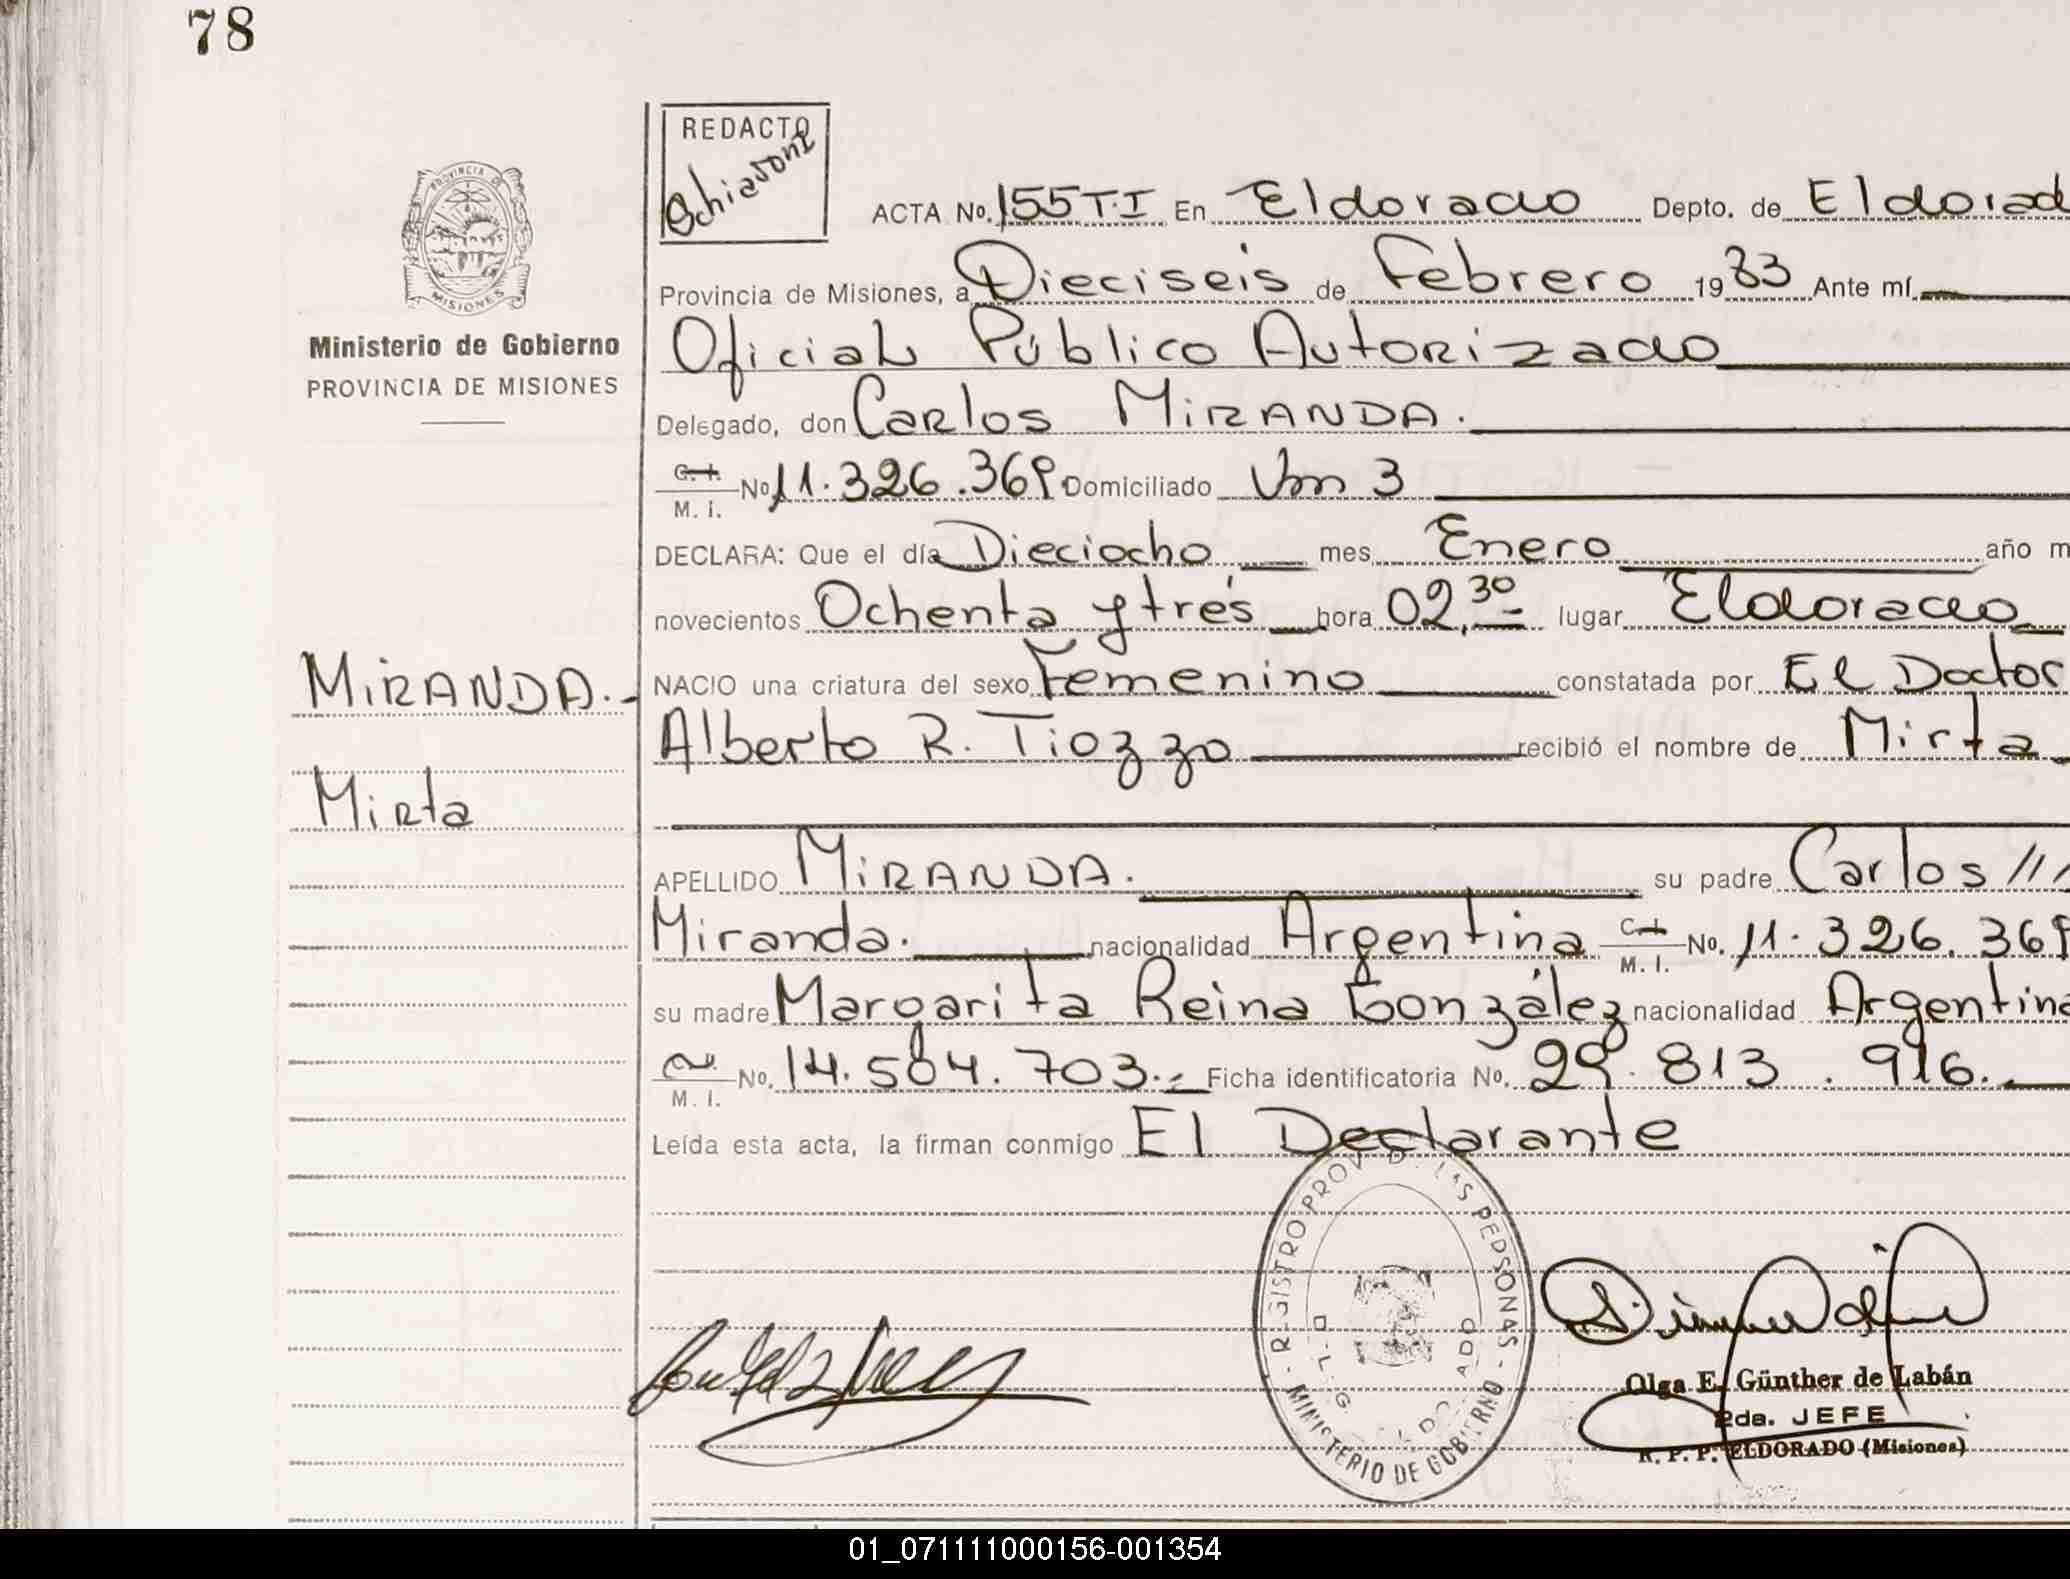 78
PROVINCIA DE
MISIONES
Ministerio de Gobierno
PROVINCIA DE MISIONES
MIRANDA.-
Mirta
REDACTO
Schiavoni
ACTA No. 155 T.I En Eldorado Depto. de Eldorad
Provincia de Misiones, a Dieciseis de Febrero 1983 Ante mí
Oficial Público Autorizado
Delegado, don Carlos MIRANDA.
C. I. M. I. No 11.326.369 Domiciliado Km 3
DECLARA: Que el día Dieciocho mes Enero año m
novecientos Ochenta y trés hora 02,30 lugar Eldorado
NACIO una criatura del sexo Femenino constatada por El Doctor
Alberto R. Tiozzo recibió el nombre de Mirta
APELLIDO MIRANDA. su padre Carlos ///
Miranda. nacionalidad Argentina C. I. M. I. No. 11.326.369
su madre Margarita Reina González nacionalidad Argentina
M. I. No. 14.584.703.- Ficha identificatoria No. 29.813.916.
Leída esta acta, la firman conmigo El Declarante
REGISTRO PROV. DE LAS PERSONAS - MINISTERIO DE GOBIERNO -
Olga E. Günther de Labán
2da. JEFE
R. P. P. ELDORADO (Misiones)
01_071111000156-001354